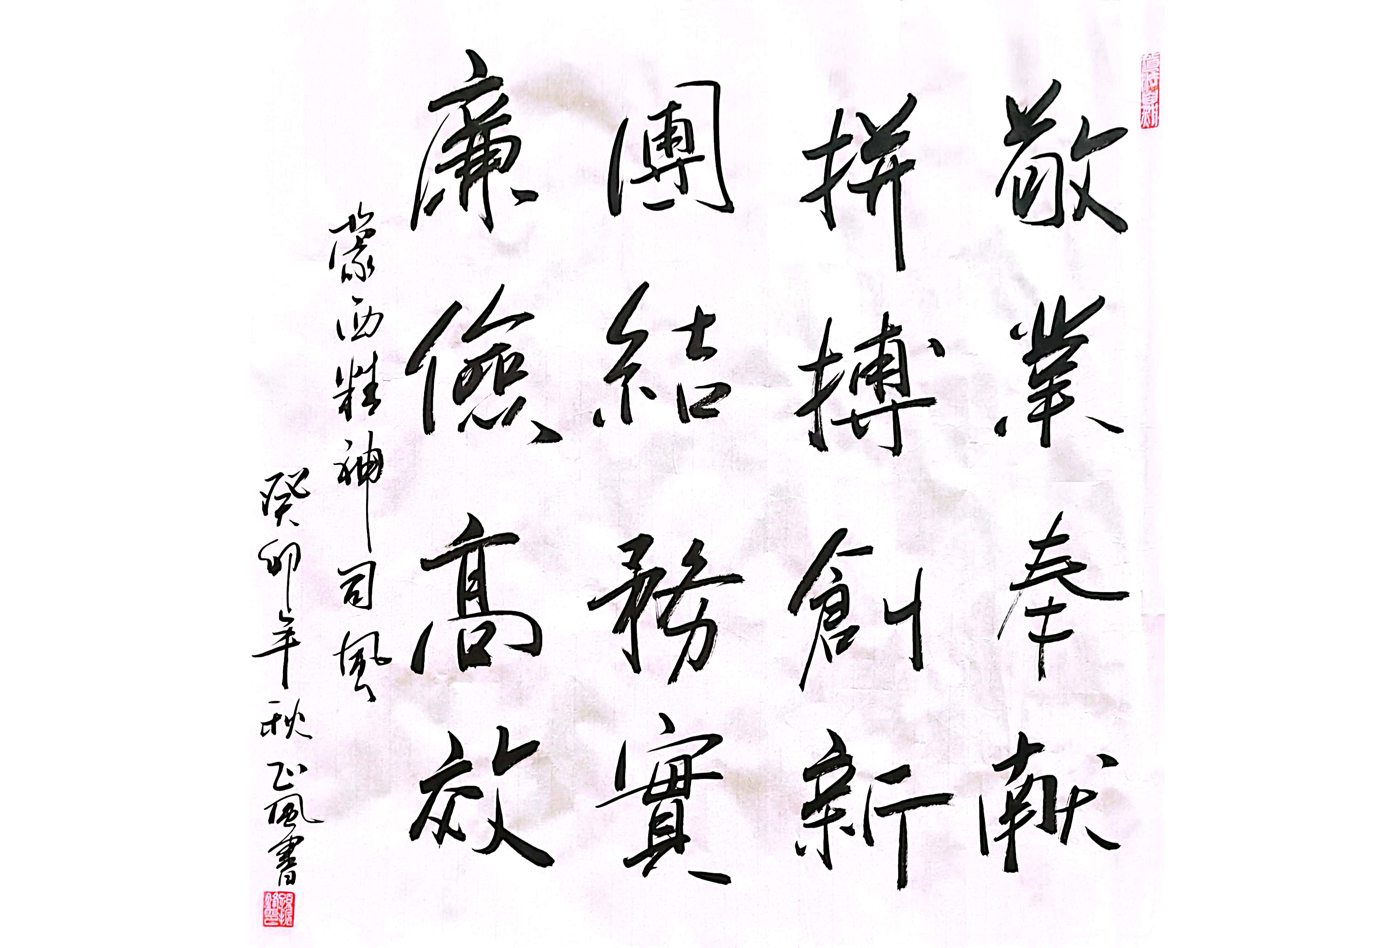 敬業奉献
拼搏創新
團結務實
廉儉高效
蒙西精神司风
癸卯年秋正风書